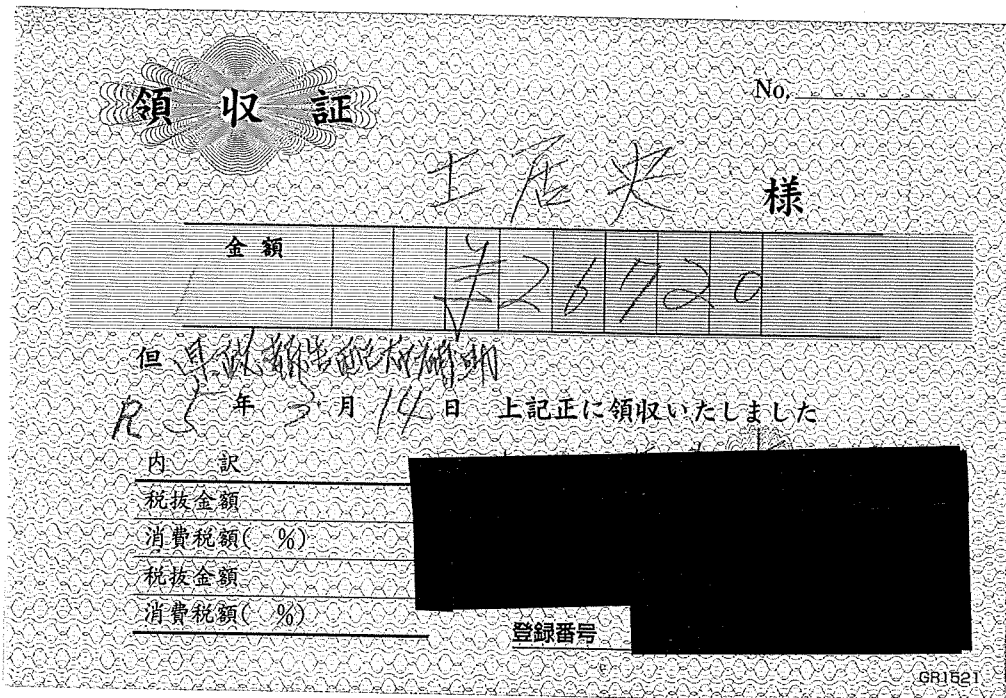 領収証
No.
土居央 様
金額 ¥26720
但 県政報告配布補助
R5年3月14日 上記正に領収いたしました
内訳
税抜金額
消費税額( %)
税抜金額
消費税額( %)
登録番号
GR1521